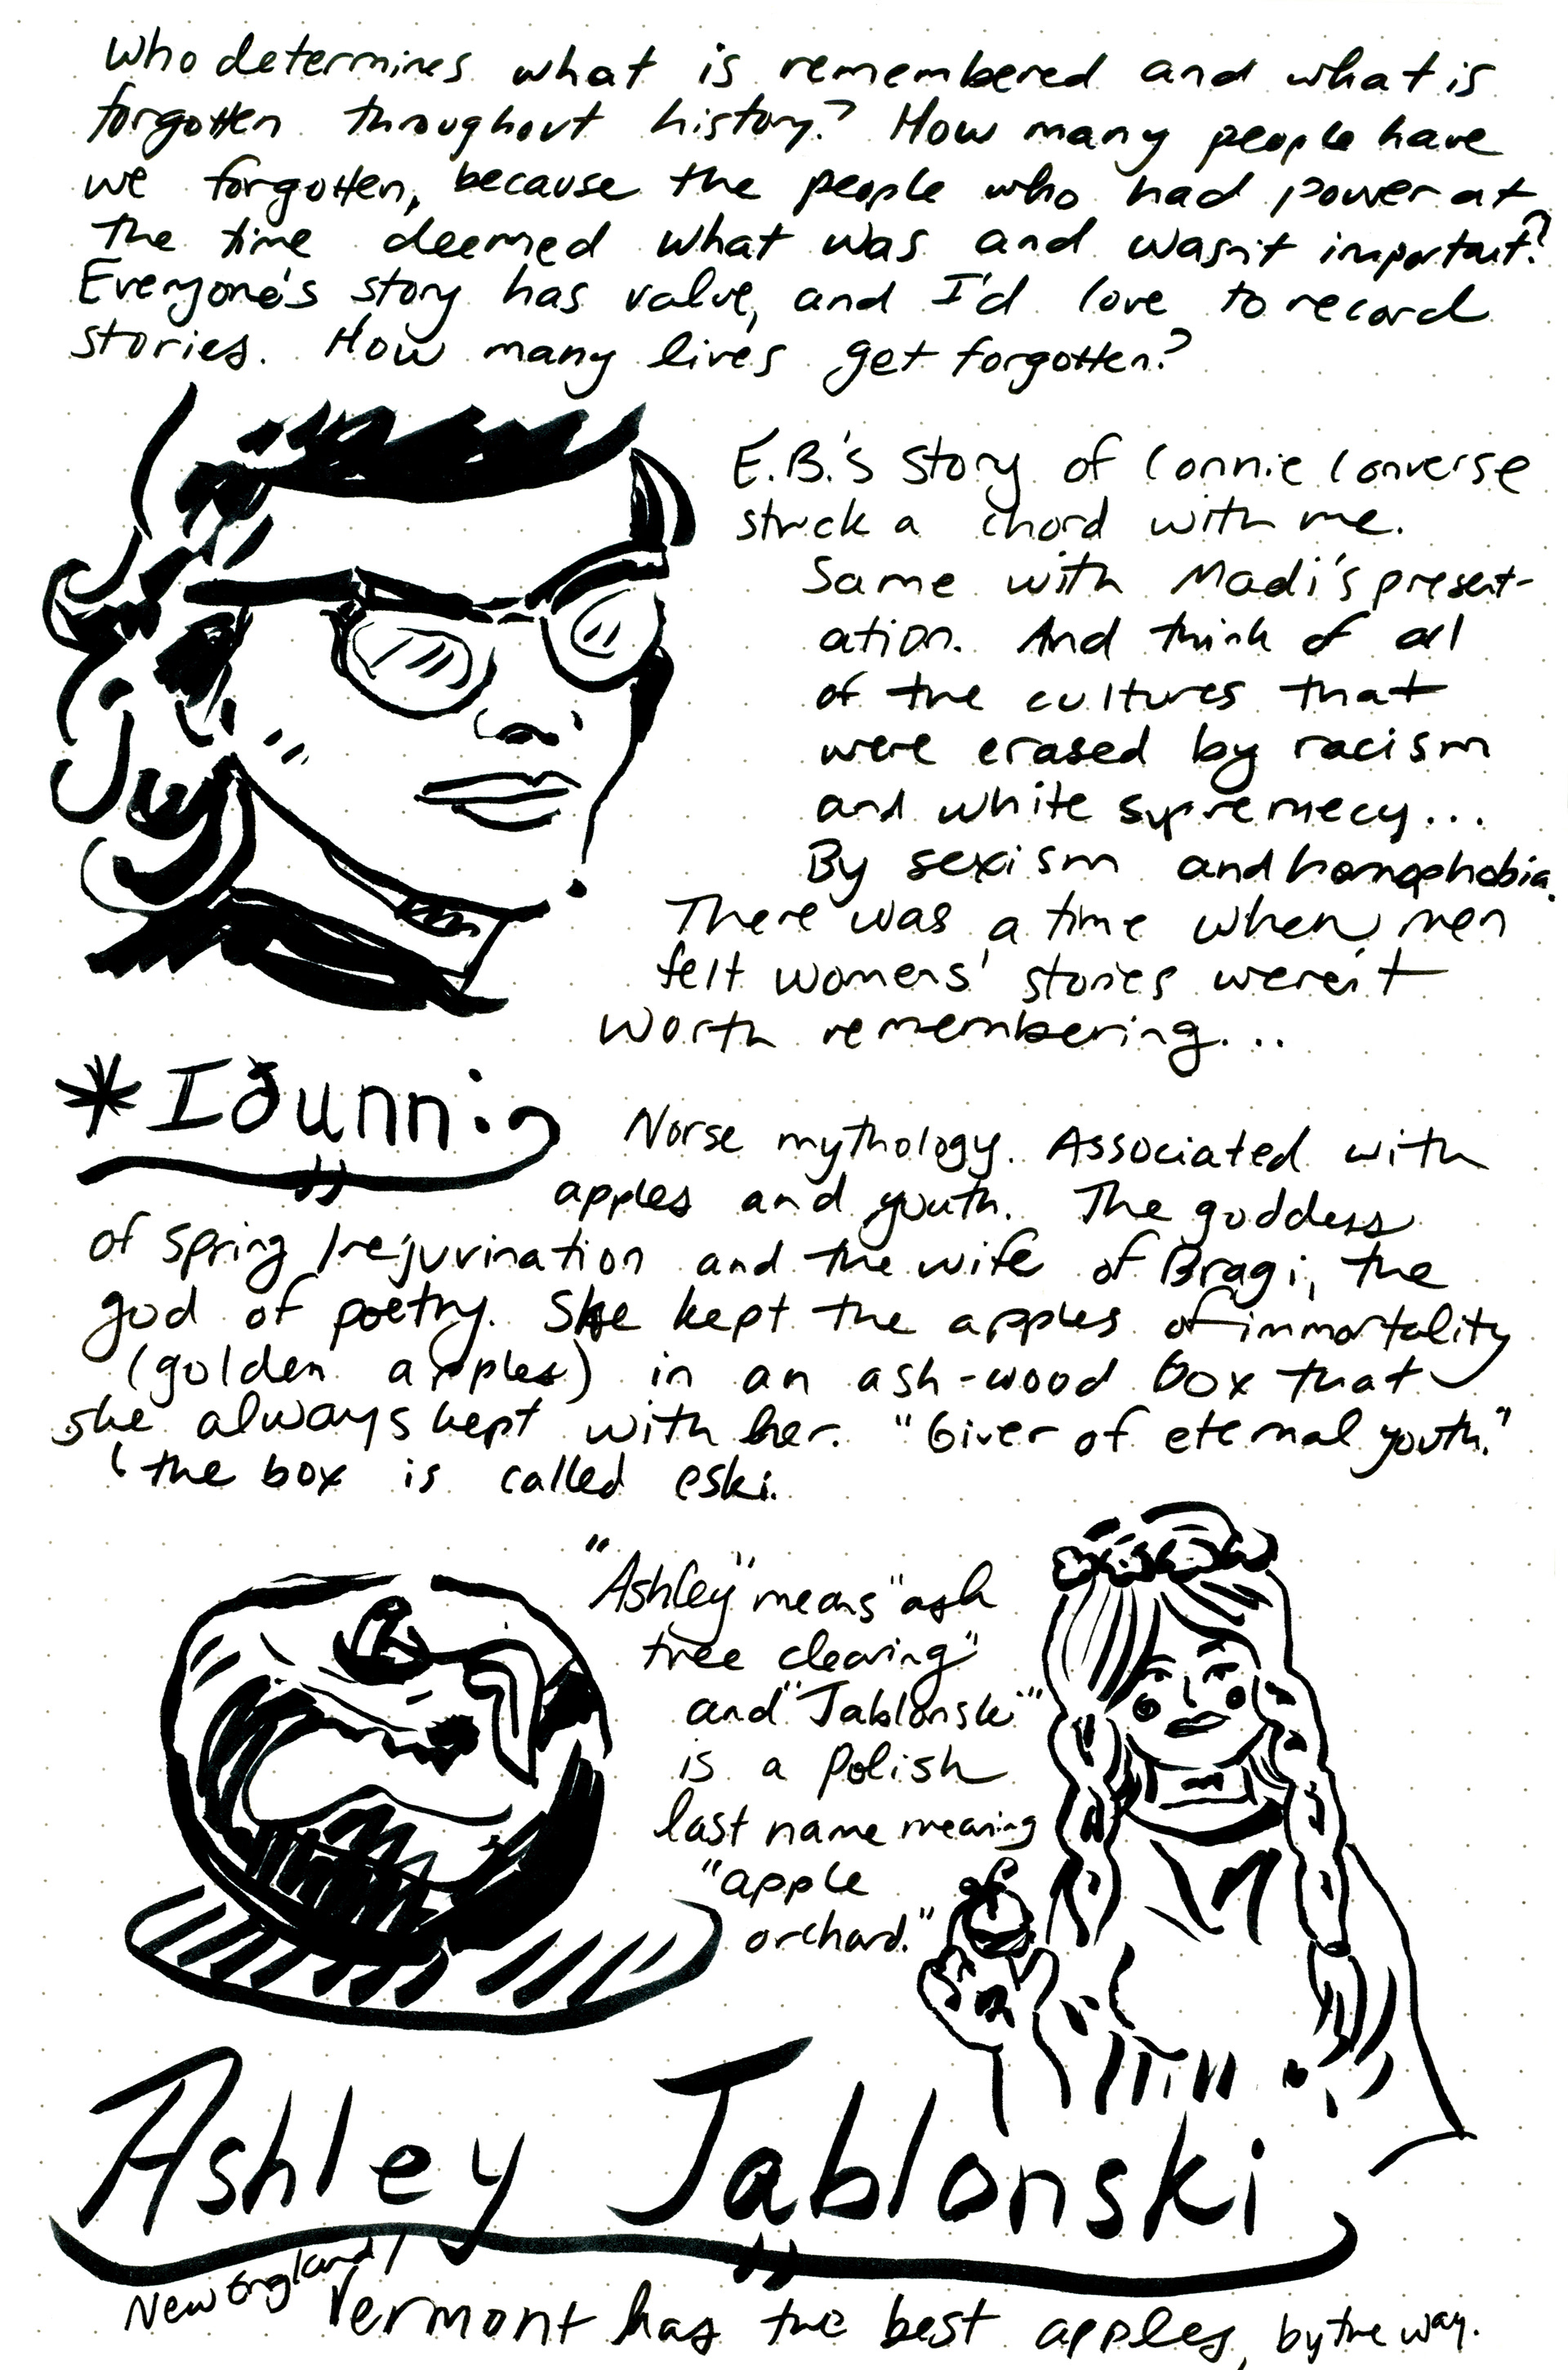 Who determines what is remembered and what is
forgotten throughout history? How many people have
we forgotten, because the people who had power at
the time deemed what was and wasn't important?
Everyone's story has value, and I'd love to record
stories. How many lives get forgotten?
E.B.'s story of Connie Converse
struck a chord with me.
Same with Madi's present-
ation. And think of all
of the cultures that
were erased by racism
and white supremecy...
By sexism and homophobia.
There was a time when men
felt womens' stories weren't
worth remembering...
*Iðunn:
Norse mythology. Associated with
apples and youth. The goddess
of spring/rejuvination and the wife of Bragi, the
god of poetry. She kept the apples of immortality
(golden apples) in an ash-wood box that
she always kept with her. "Giver of eternal youth."
the box is called eski.
"Ashley" means "ash
tree clearing"
and "Jablonski"
is a Polish
last name meaning
"apple
orchard."
Ashley Jablonski
New England/
Vermont has the best apples, by the way.